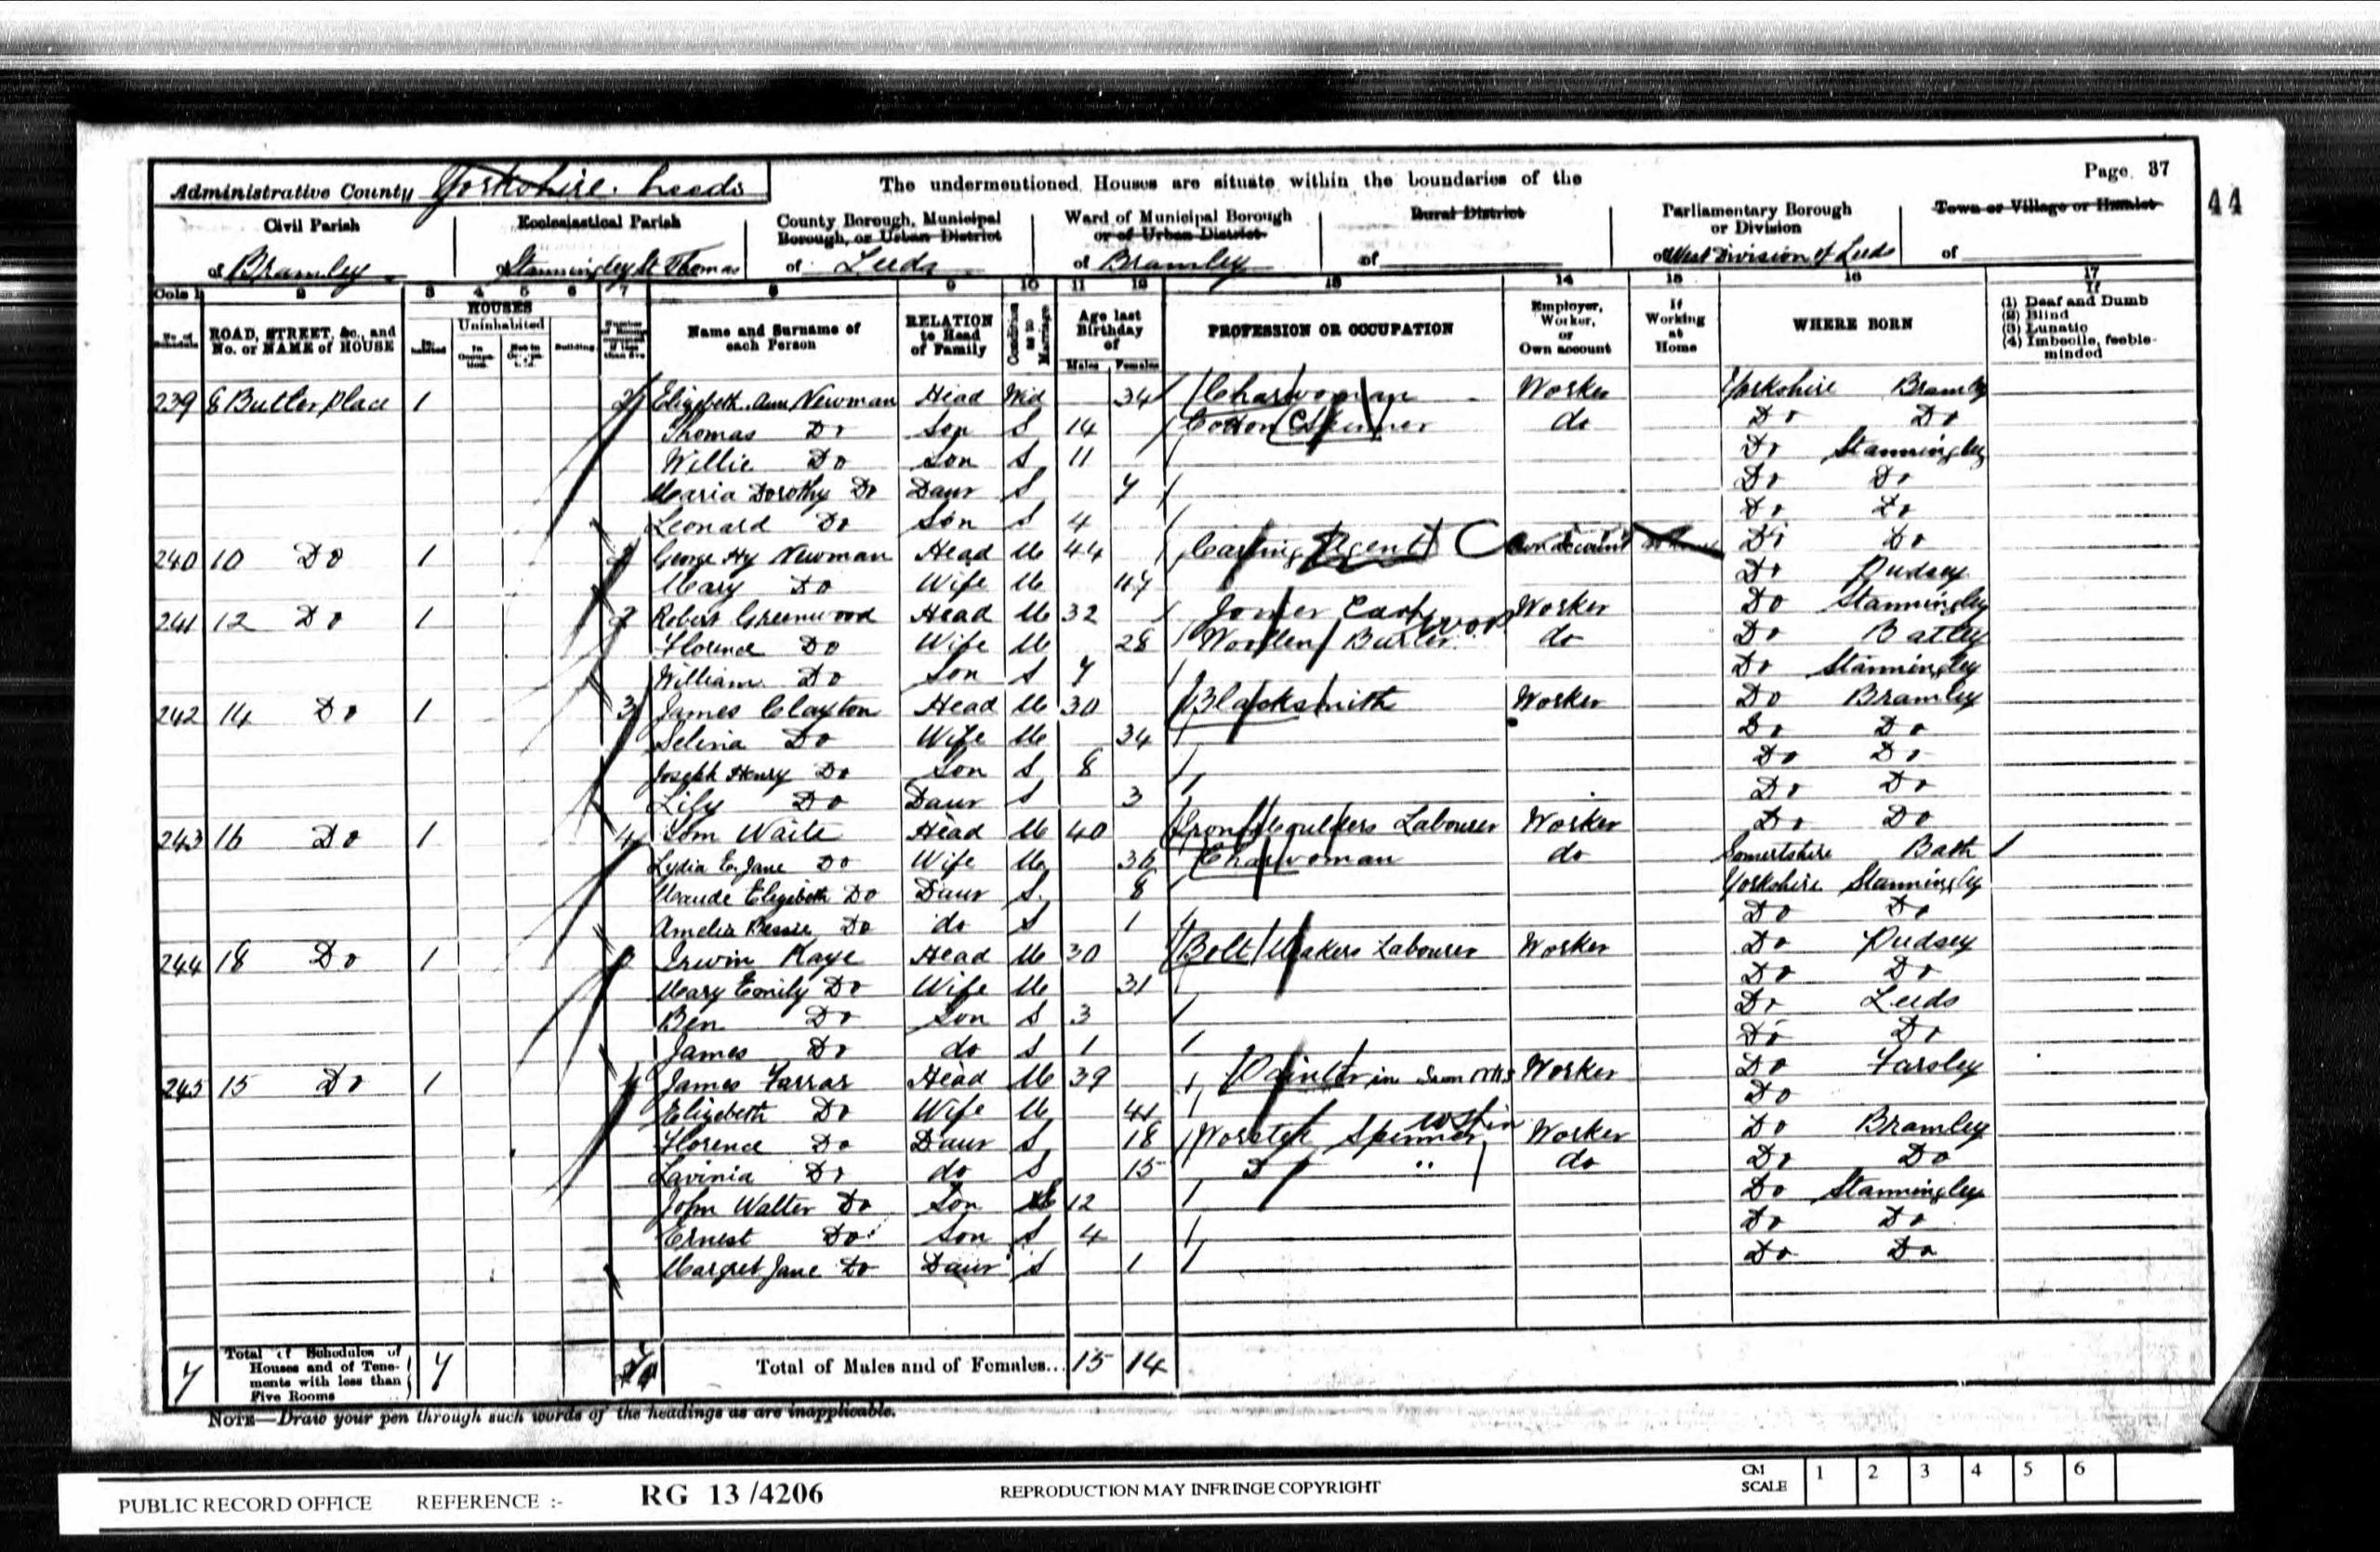 Page 37
44
Administrative County Yorkshire. Leeds
The undermentioned Houses are situate within the boundaries of the
Civil Parish of Bramley
Ecclesiastical Parish of Stanningley St Thomas
County Borough, Municipal Borough, or Urban District of Leeds
Ward of Municipal Borough or of Urban District of Bramley
Rural District of
Parliamentary Borough or Division of West Division of Leeds
Town or Village or Hamlet of
Cols 1 2 3 4 5 6 7 8 9 10 11 12 13 14 15 16 17
No. of Schedule
ROAD, STREET, &c., and No. or NAME of HOUSE
HOUSES
Inhabited
Uninhabited
In Occupation.
Not in Occupation
Building.
Name and Surname of each Person
RELATION to Head of Family
Condition as to Marriage
Age last Birthday of
Males Females
PROFESSION OR OCCUPATION
Employer, Worker, or Own account
If Working at Home
WHERE BORN
If
(1) Deaf and Dumb
(2) Blind
(3) Lunatic
(4) Imbecile, feeble-minded
239 8 Butler Place 1 2 Elizabeth Ann Newman Head Wid 34 Charwoman Worker Yorkshire Bramley
Thomas Do Son S 14 Cotton Spinner do Do Do
Willie Do Son S 11 Do Stanningley
Maria Dorothy Do Daur S 7 Do Do
Leonard Do Son S 4 Do Do
240 10 Do 1 George Hy Newman Head M 44 Agent Own account Do Do
Mary Do Wife M 47 Do Pudsey
241 12 Do 1 2 Robert Greenwood Head M 32 Joiner Worker Do Stanningley
Florence Do Wife M 28 Woollen Burler do Do Batley
William Do Son S 7 Do Stanningley
242 14 Do 1 3 James Clayton Head M 30 Blacksmith Worker Do Bramley
Selina Do Wife M 34 Do Do
Joseph Henry Do Son S 8 Do Do
Lily Do Daur S 3 Do Do
243 16 Do 1 4 Tom Waite Head M 40 Iron Moulders Labourer Worker Do Do
Lydia E. Jane Do Wife M 36 Charwoman do Somertshire Bath
Maude Elizabeth Do Daur S 8 Yorkshire Stanningley
Amelia Bessie Do do S 1 Do Do
244 18 Do 1 Irwin Kaye Head M 30 Bolt Makers Labourer Worker Do Pudsey
Mary Emily Do Wife M 31 Do Do
Ben Do Son S 3 Do Leeds
James Do do S 1 Do Do
245 15 Do 1 James Farrar Head M 39 Painter in Iron Worker Do Farsley
Elizabeth Do Wife M 41 Do
Florence Do Daur S 18 Worsted Spinner Worker Do Bramley
Lavinia Do do S 15 Do " do Do Do
John Walter Do Son S 12 Do Stanningley
Ernest Do Son S 4 Do Do
Margret Jane Do Daur S 1 Do Do
7 Total of Schedules of Houses and of Tenements with less than Five Rooms 7
Total of Males and of Females... 15 14
NOTE—Draw your pen through such words of the headings as are inapplicable.
PUBLIC RECORD OFFICE REFERENCE :- RG 13 /4206 REPRODUCTION MAY INFRINGE COPYRIGHT CM SCALE 1 2 3 4 5 6